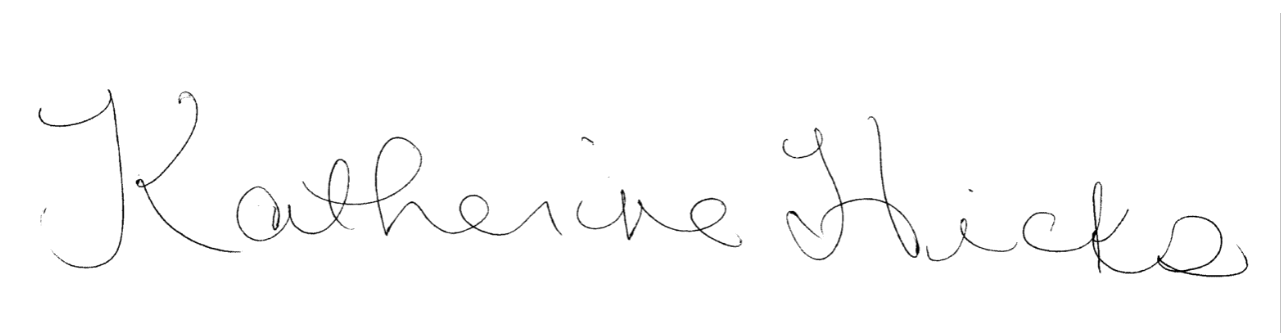 Katherine Hicks